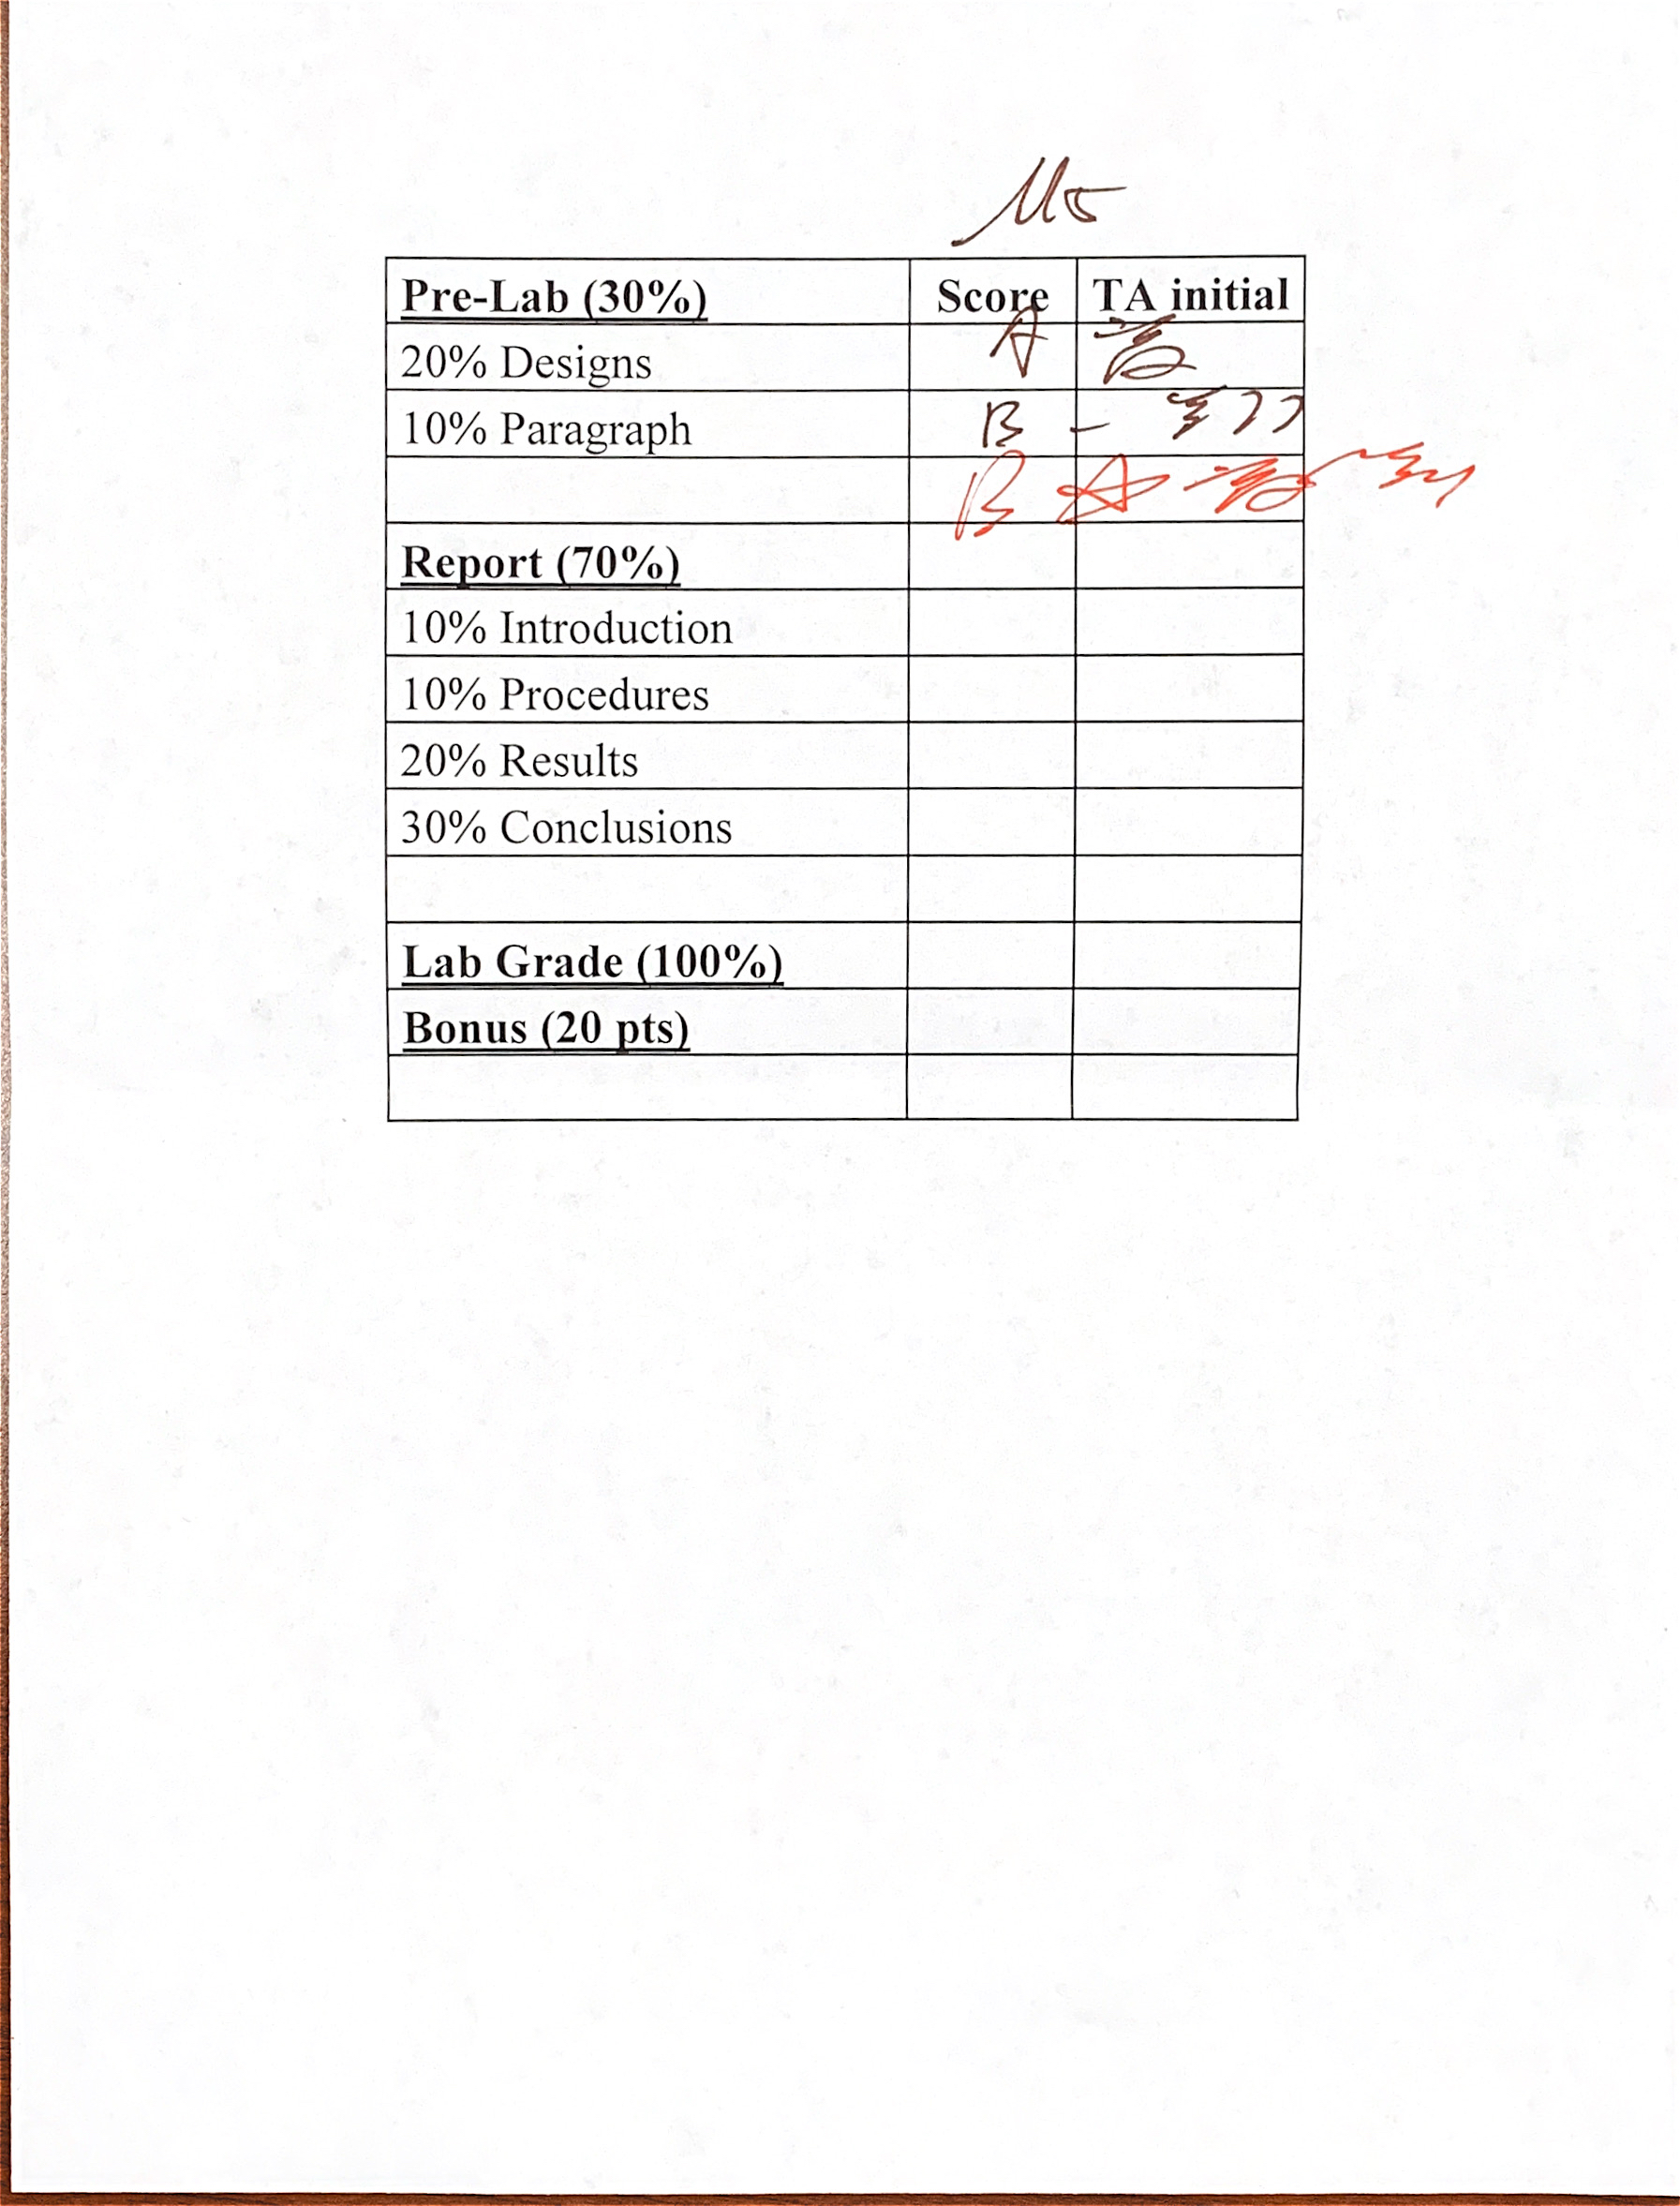 Pre-Lab (30%) Score TA initial
20% Designs A
10% Paragraph B -
B A
Report (70%)
10% Introduction
10% Procedures
20% Results
30% Conclusions
Lab Grade (100%)
Bonus (20 pts)